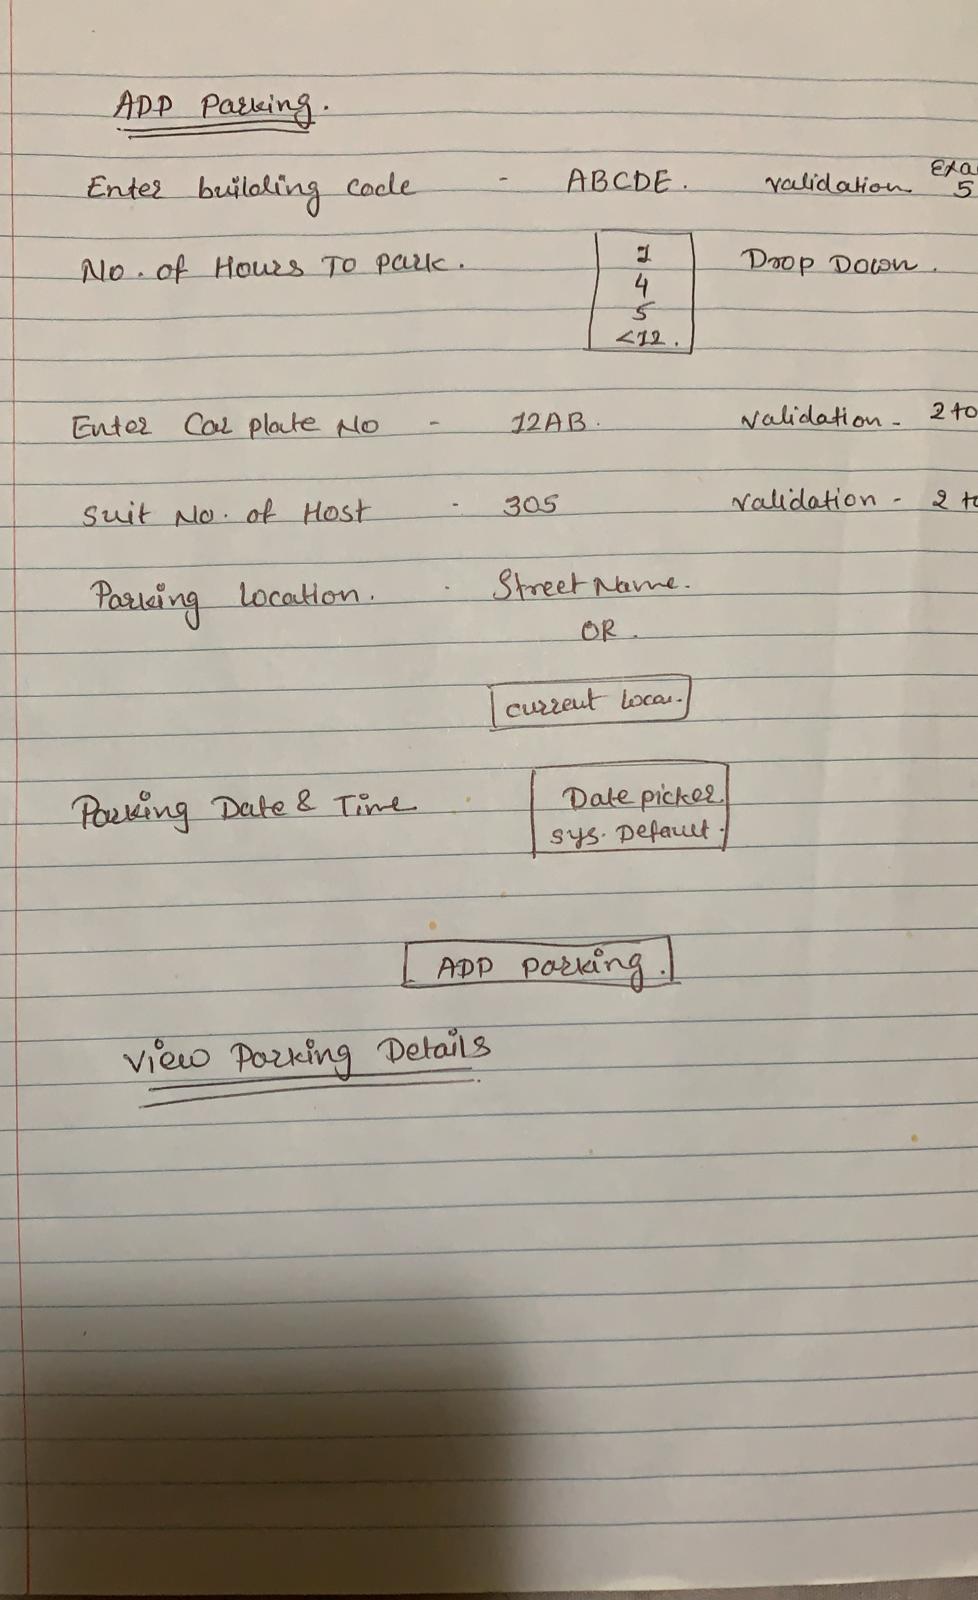 ADD Parking.
Enter building code - ABCDE. validation Exa
5
No. of Hours To park. 1 Drop Down.
4
5
<12.
Enter Car plate No - 12AB. validation - 2 to
Suit No. of Host - 305 validation - 2 to
Parking Location. - Street Name.
OR.
current Locat.
Parking Date & Time Date picker
sys. Default.
ADD parking.
View Parking Details